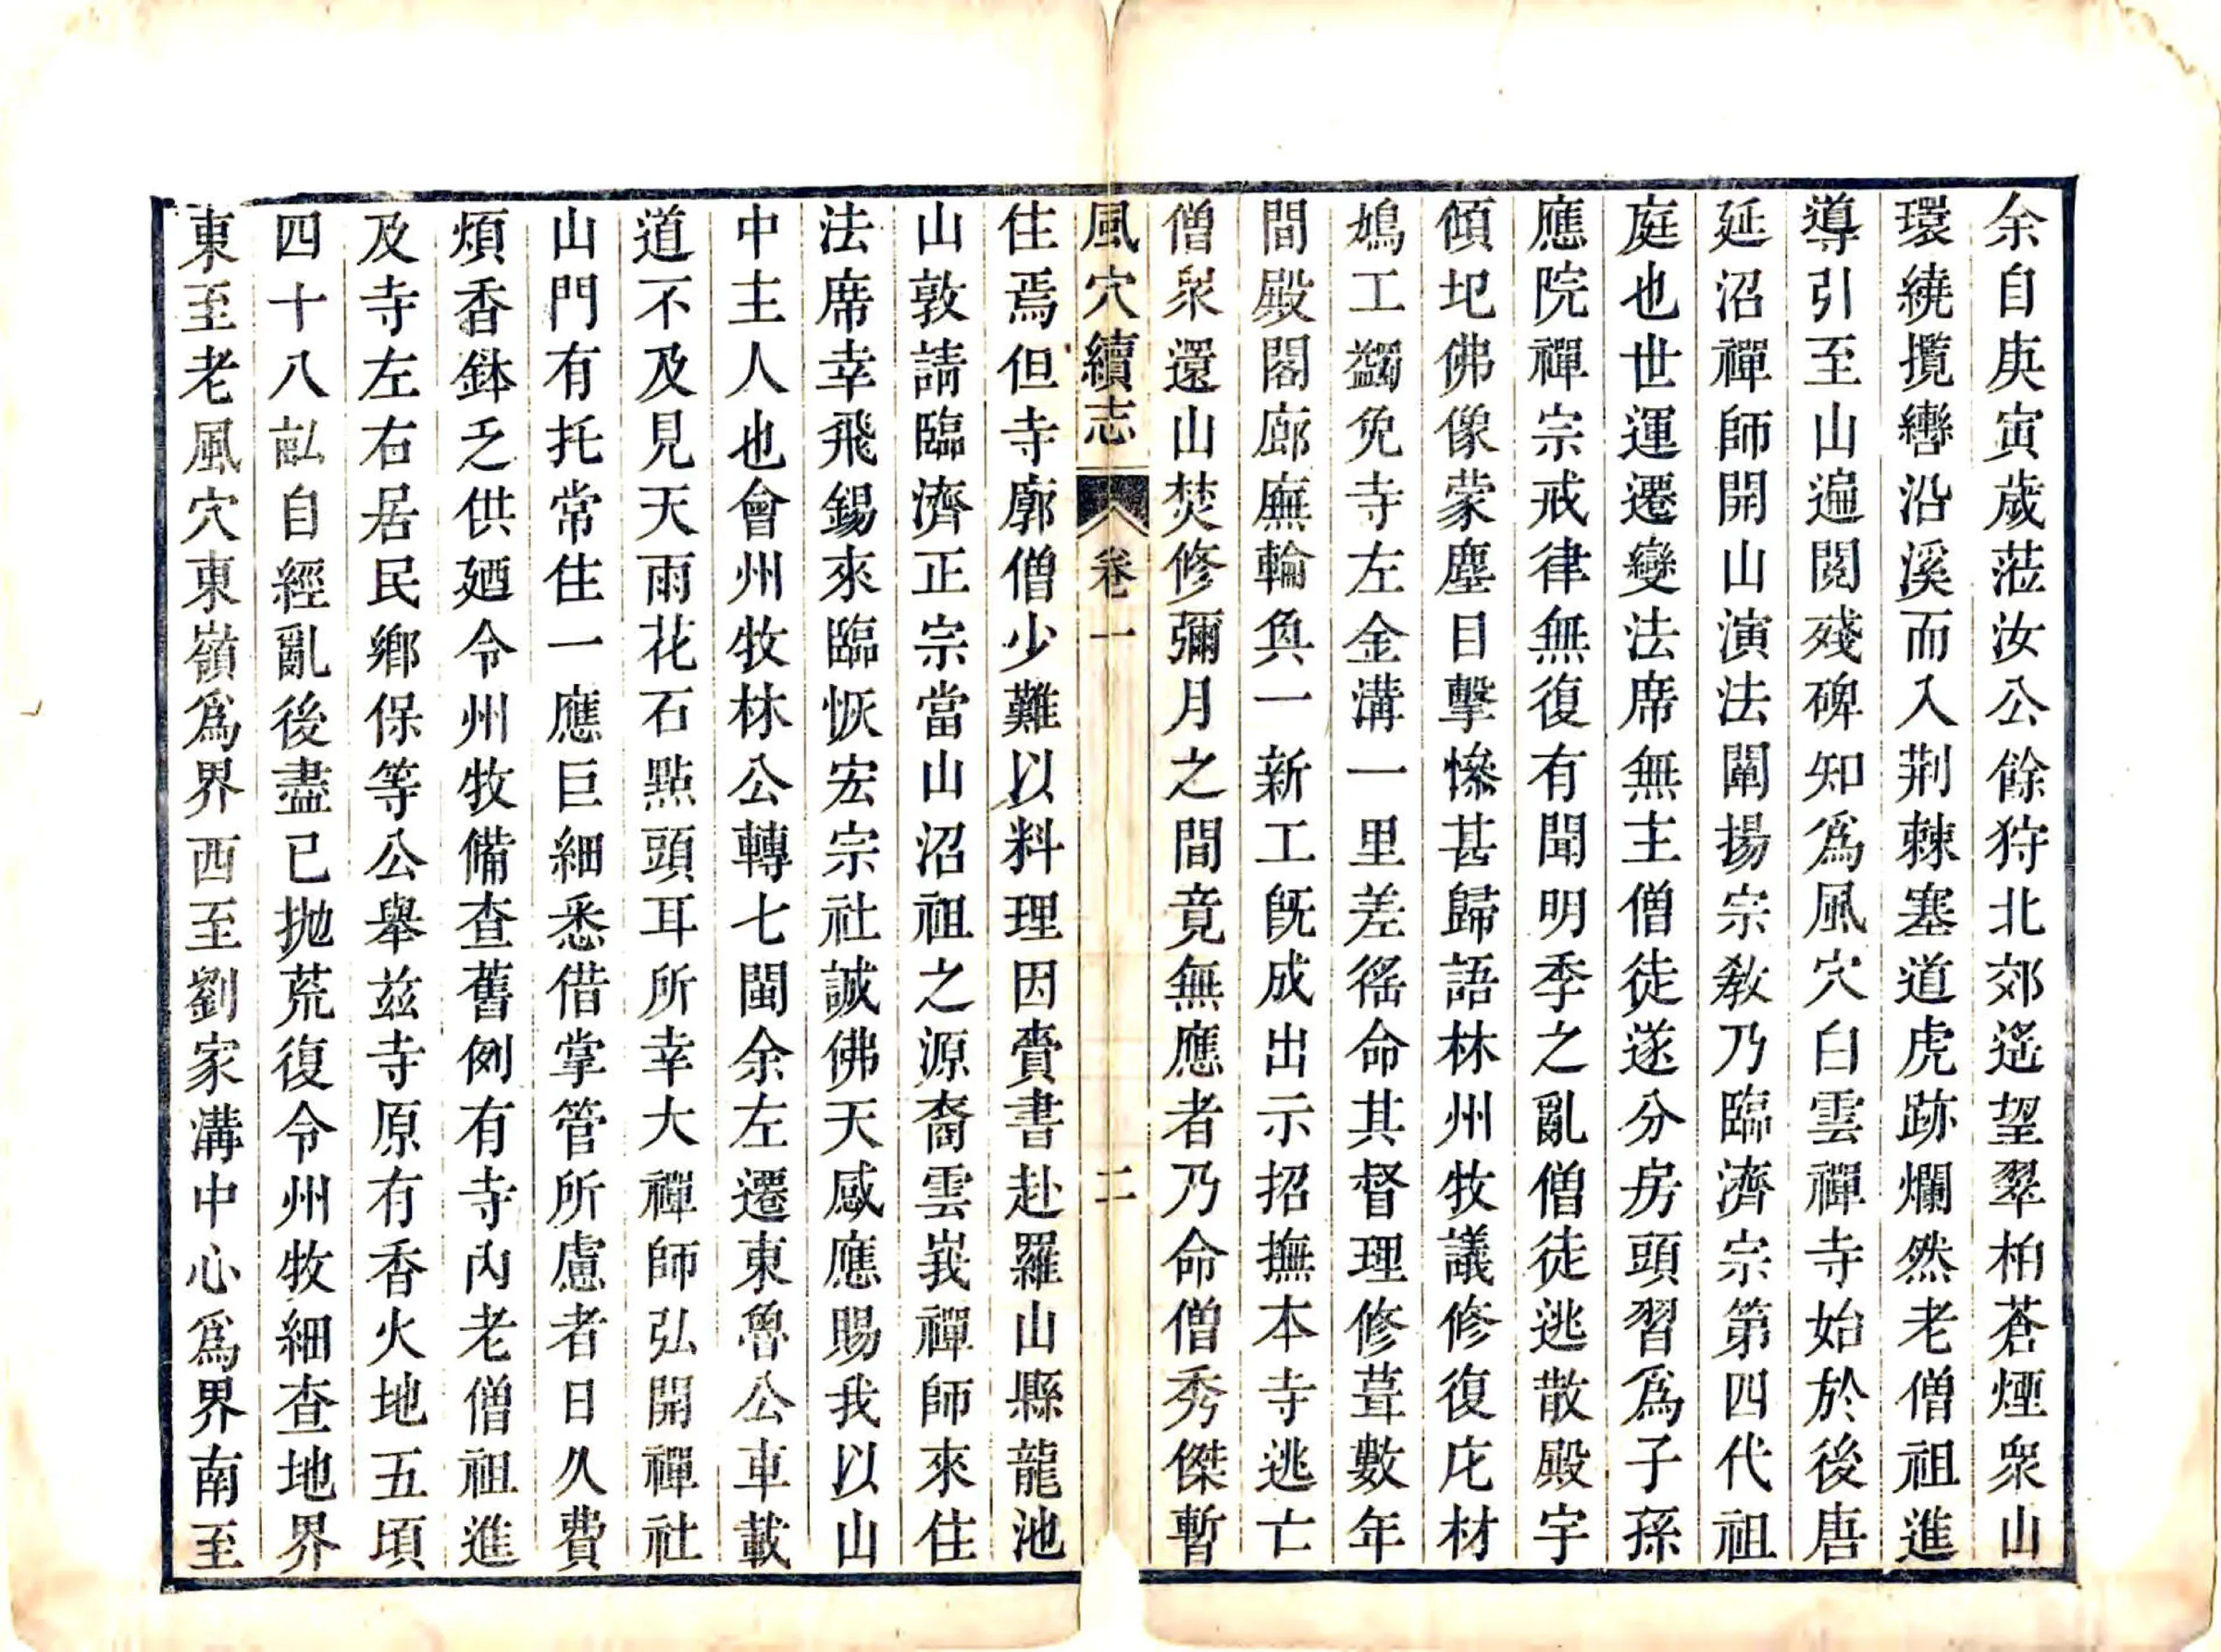 余自庚寅歲蒞汝公餘狩北郊遙望翠柏蒼煙衆山
環繞攬轡沿溪而入荆棘塞道虎跡爛然老僧祖進
導引至山遍閱殘碑知爲風穴白雲禪寺始於後唐
延沼禪師開山演法闡揚宗教乃臨濟宗第四代祖
庭也世運遷變法席無主僧徒遂分房頭習爲子孫
應院禪宗戒律無復有聞明季之亂僧徒逃散殿宇
傾圮佛像蒙塵目擊慘甚歸語林州牧議修復庀材
鳩工蠲免寺左金溝一里差徭命其督理修葺數年
間殿閣廊廡輪奐一新工旣成出示招撫本寺逃亡
僧衆還山焚修彌月之間竟無應者乃命僧秀傑暫
風穴續志 卷一 二
住焉但寺廓僧少難以料理因賫書赴羅山縣龍池
山敦請臨濟正宗當山沼祖之源裔雲峩禪師來住
法席幸飛錫來臨恢宏宗社誠佛天感應賜我以山
中主人也會州牧林公轉七閩余左遷東魯公車載
道不及見天雨花石點頭耳所幸大禪師弘開禪社
山門有托常住一應巨細悉借掌管所慮者日久費
煩香鉢乏供廼令州牧備查舊例有寺內老僧祖進
及寺左右居民鄉保等公舉玆寺原有香火地五頃
四十八畆自經亂後盡已抛荒復令州牧細查地界
東至老風穴東嶺爲界西至劉家溝中心爲界南至